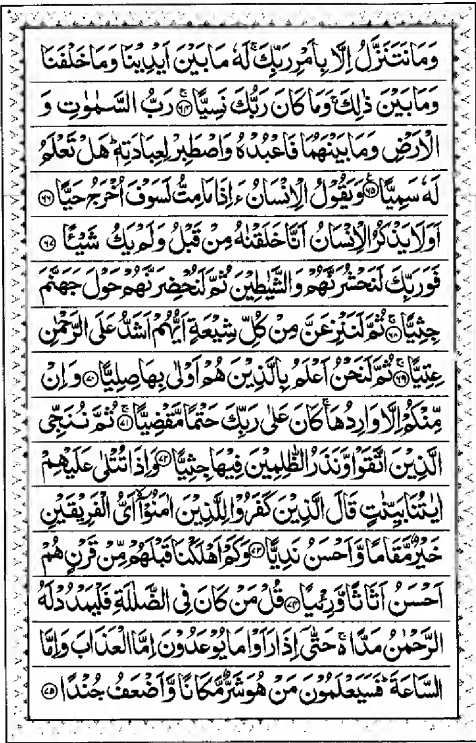 وَمَا نَتَنَزَّلُ اِلَّا بِاَمْرِ رَبِّكَ ۚ لَهٗ مَا بَيْنَ اَيْدِيْنَا وَمَا خَلْفَنَا
وَمَا بَيْنَ ذٰلِكَ ۚ وَمَا كَانَ رَبُّكَ نَسِيًّا ۚ ﴿۶۴﴾ رَبُّ السَّمٰوٰتِ وَ
الْاَرْضِ وَمَا بَيْنَهُمَا فَاعْبُدْهُ وَاصْطَبِرْ لِعِبَادَتِهٖ ؕ هَلْ تَعْلَمُ
لَهٗ سَمِيًّا ﴿۶۵﴾ وَيَقُوْلُ الْاِنْسَانُ ءَاِذَا مَا مِتُّ لَسَوْفَ اُخْرَجُ حَيًّا ﴿۶۶﴾
اَوَلَا يَذْكُرُ الْاِنْسَانُ اَنَّا خَلَقْنٰهُ مِنْ قَبْلُ وَلَمْ يَكُ شَيْئًا ﴿۶۷﴾
فَوَرَبِّكَ لَنَحْشُرَنَّهُمْ وَالشَّيٰطِيْنَ ثُمَّ لَنُحْضِرَنَّهُمْ حَوْلَ جَهَنَّمَ
جِثِيًّا ۚ ﴿۶۸﴾ ثُمَّ لَنَنْزِعَنَّ مِنْ كُلِّ شِيْعَةٍ اَيُّهُمْ اَشَدُّ عَلَى الرَّحْمٰنِ
عِتِيًّا ۚ ﴿۶۹﴾ ثُمَّ لَنَحْنُ اَعْلَمُ بِالَّذِيْنَ هُمْ اَوْلٰى بِهَا صِلِيًّا ﴿۷۰﴾ وَاِنْ
مِّنْكُمْ اِلَّا وَارِدُهَا ۚ كَانَ عَلٰى رَبِّكَ حَتْمًا مَّقْضِيًّا ۚ ﴿۷۱﴾ ثُمَّ نُنَجِّى
الَّذِيْنَ اتَّقَوْا وَّنَذَرُ الظّٰلِمِيْنَ فِيْهَا جِثِيًّا ﴿۷۲﴾ وَاِذَا تُتْلٰى عَلَيْهِمْ
اٰيٰتُنَا بَيِّنٰتٍ قَالَ الَّذِيْنَ كَفَرُوْا لِلَّذِيْنَ اٰمَنُوْٓا اَىُّ الْفَرِيْقَيْنِ
خَيْرٌ مَّقَامًا وَّاَحْسَنُ نَدِيًّا ﴿۷۳﴾ وَكَمْ اَهْلَكْنَا قَبْلَهُمْ مِّنْ قَرْنٍ هُمْ
اَحْسَنُ اَثَاثًا وَّرِءْيًا ﴿۷۴﴾ قُلْ مَنْ كَانَ فِى الضَّلٰلَةِ فَلْيَمْدُدْ لَهُ
الرَّحْمٰنُ مَدًّا ۚ حَتّٰٓى اِذَا رَاَوْا مَا يُوْعَدُوْنَ اِمَّا الْعَذَابَ وَاِمَّا
السَّاعَةَ ؕ فَسَيَعْلَمُوْنَ مَنْ هُوَ شَرٌّ مَّكَانًا وَّاَضْعَفُ جُنْدًا ﴿۷۵﴾